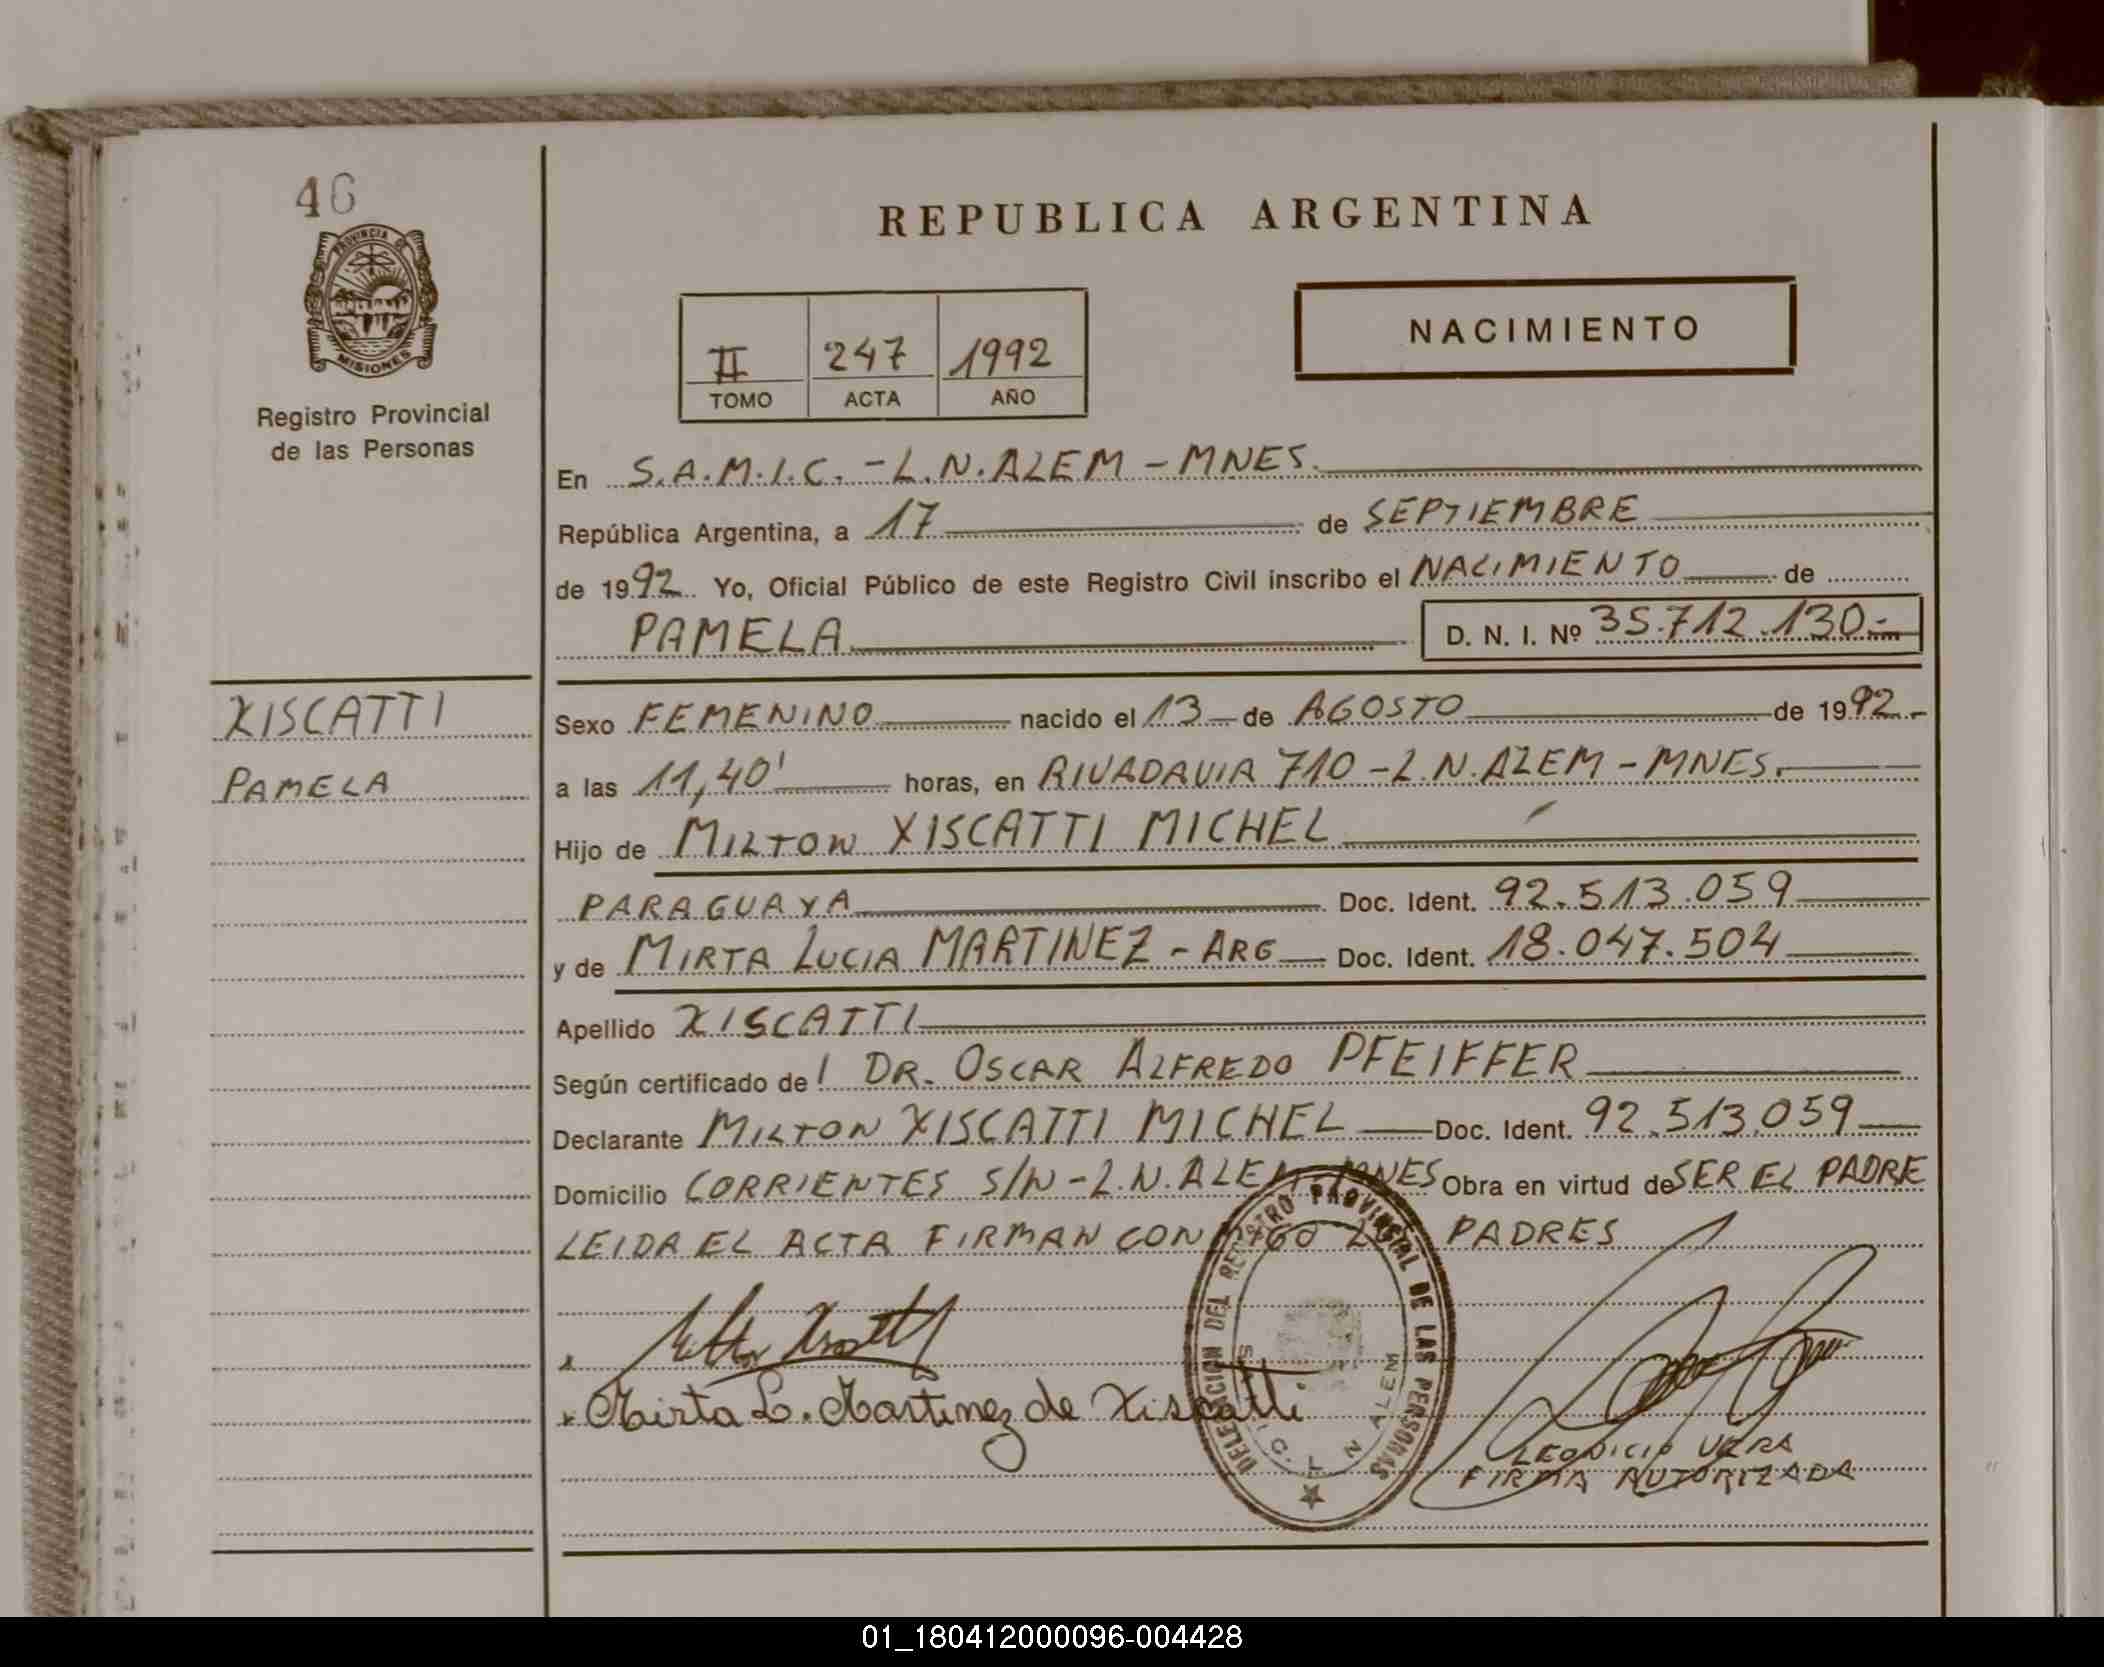 46
PROVINCIA DE
MISIONES
Registro Provincial
de las Personas
REPUBLICA ARGENTINA
II 247 1992
TOMO ACTA AÑO
NACIMIENTO
En S.A.M.I.C. - L.N. ALEM - MNES.
República Argentina, a 17 de SEPTIEMBRE
de 1992 Yo, Oficial Público de este Registro Civil inscribo el NACIMIENTO de
PAMELA D. N. I. Nº 35.712.130.-
XISCATTI
PAMELA
Sexo FEMENINO nacido el 13 de AGOSTO de 1992.-
a las 11,40' horas, en RIVADAVIA 710 - L.N. ALEM - MNES.
Hijo de MILTON XISCATTI MICHEL
PARAGUAYA Doc. Ident. 92.513.059
y de MIRTA LUCIA MARTINEZ - ARG Doc. Ident. 18.047.504
Apellido XISCATTI
Según certificado de l DR. OSCAR ALFREDO PFEIFFER
Declarante MILTON XISCATTI MICHEL Doc. Ident. 92.513.059
Domicilio CORRIENTES S/N - L.N. ALEM - MNES Obra en virtud de SER EL PADRE
LEIDA EL ACTA FIRMAN CONMIGO LOS PADRES
Mirta L. Martinez de Xiscatti
DELEGACION DEL REGISTRO PROVINCIAL DE LAS PERSONAS
L N ALEM
LEONICIO VERA
FIRMA AUTORIZADA
01_180412000096-004428